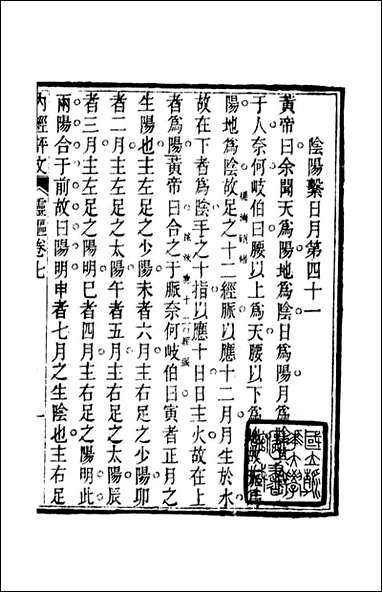 陰陽繫日月第四十一
黃帝曰余聞天為陽地為陰日為陽月為陰其
于人奈何岐伯曰腰以上為天腰以下為
陽地為陰故足之十二經脈以應十二月月生於水
故在下者為陰手之十指以應十日日主火故在上
者為陽黃帝曰合之于脈奈何岐伯曰寅者正月之
生陽也主左足之少陽未者六月主右足之少陽卯
者二月主左足之太陽午者五月主右足之太陽辰
者三月主左足之陽明巳者四月主右足之陽明此
兩陽合于前故曰陽明申者七月之生陰也主右足
內經評文
靈樞卷七
一